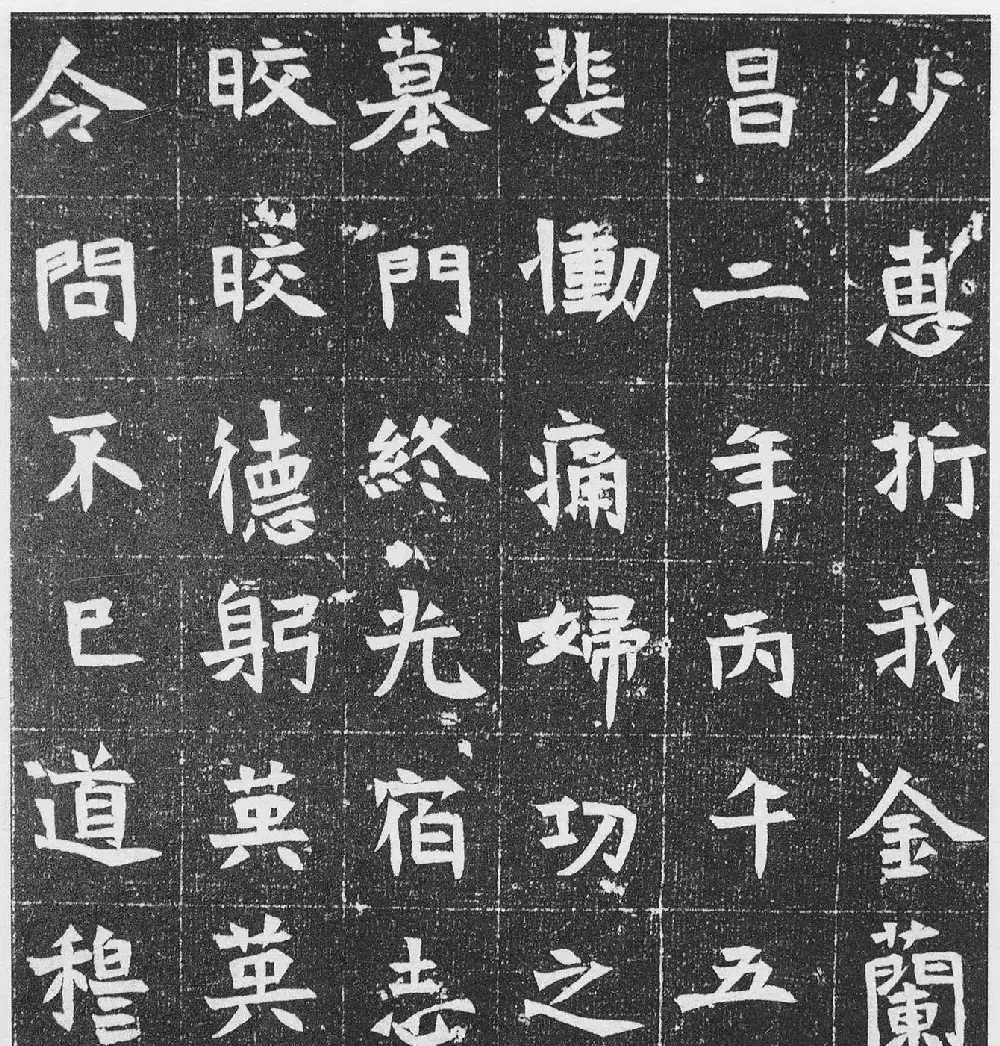 少惠折我金蘭
昌二年丙午五
悲慟痛婦功之
墓門終光宿志
晈晈德躬英英
令問不已道穆